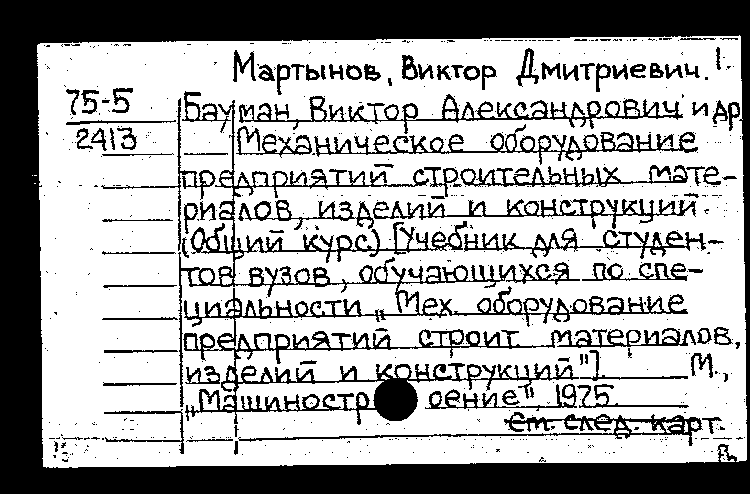 Мартынов, Виктор Дмитриевич.
75-5
2413
Бауман, Виктор Александрович и др
Механическое оборудование
предприятий строительных мате-
риалов, изделий и конструкций.
(Общий курс) [Учебник для студен-
тов вузов, обучающихся по спе-
циальности „Мех. оборудование
предприятий строит. материалов,
изделий и конструкций"]. М.,
„Машиностр оение", 1975.
См. след. карт.